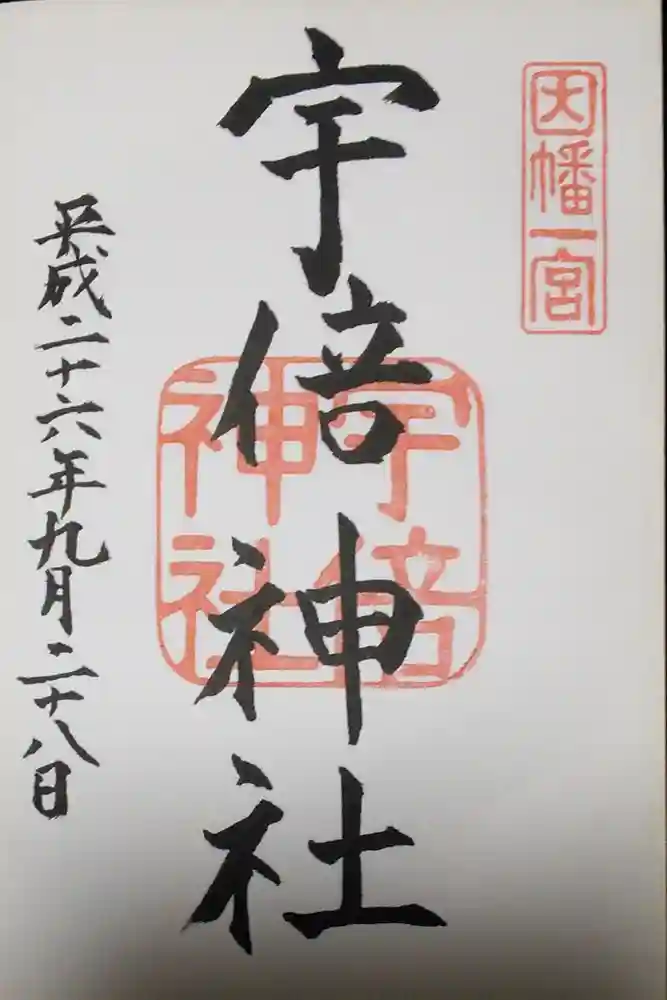 因幡一宮
宇倍神社
宇倍神社
平成二十六年九月二十八日